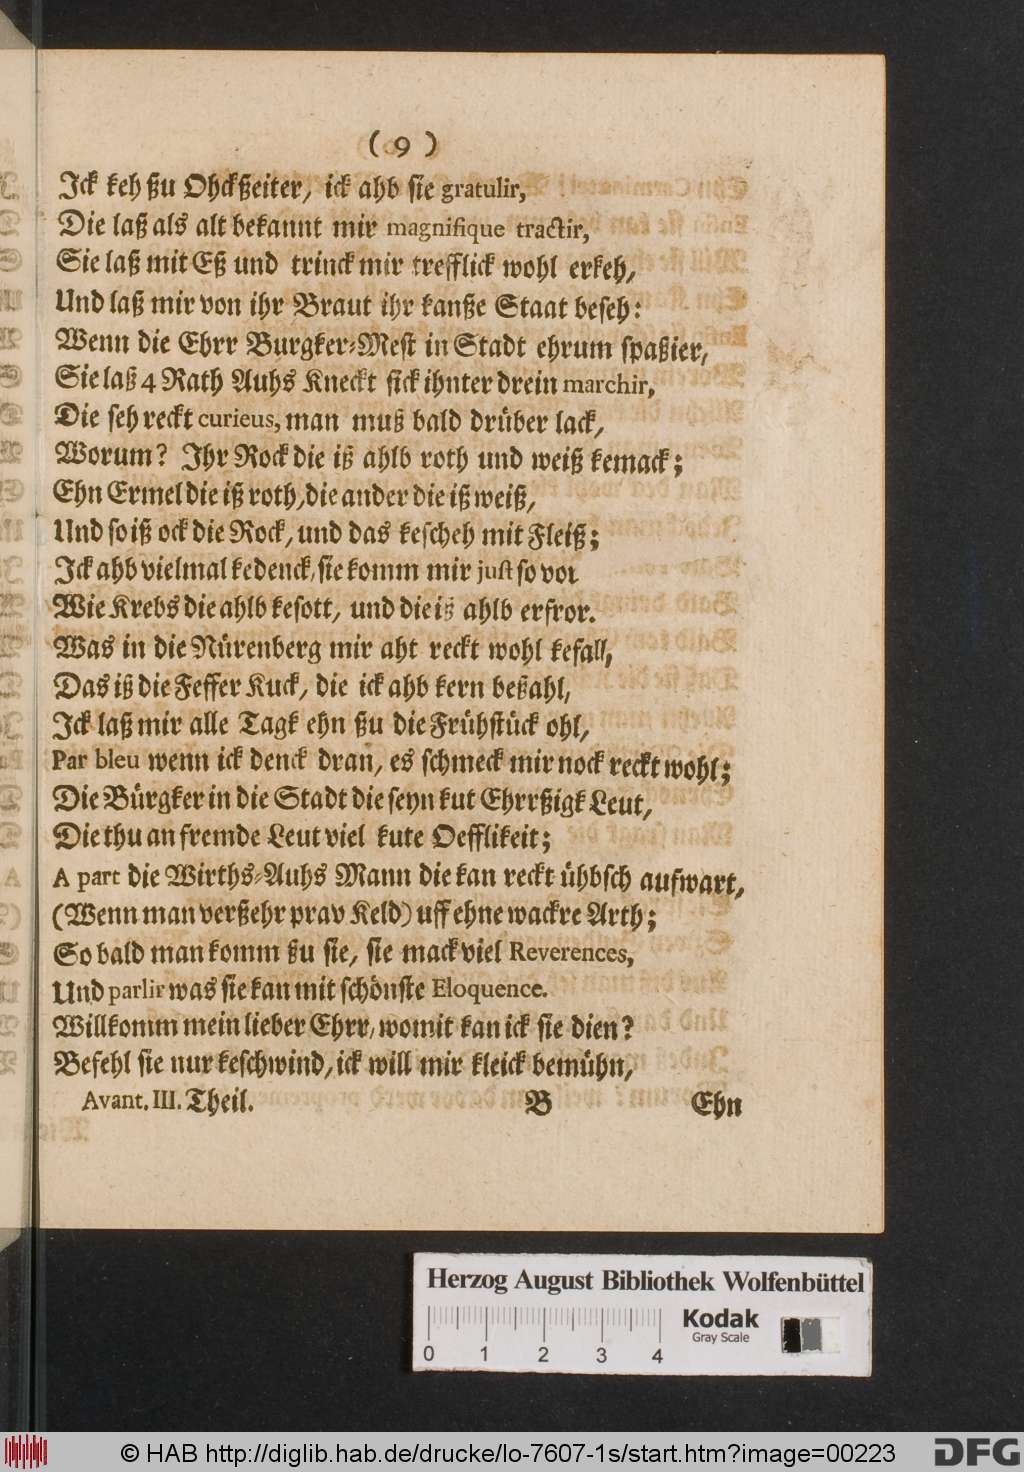 ( 9 )
Ick keh ßu Ohckßeiter, ick ahb sie gratulir,
Die laß als alt bekannt mir magnifique tractir,
Sie laß mit Eß und trinck mir trefflick wohl erkeh,
Und laß mir von ihr Braut ihr kanße Staat beseh:
Wenn die Ehrr Burgker-Mest in Stadt ehrum spaßier,
Sie laß 4 Rath Auhs Kneckt sick ihnter drein marchir,
Die seh reckt curieus, man muß bald drüber lack,
Worum? Ihr Rock die iß ahlb roth und weiß kemack;
Ehn Ermel die iß roth, die ander die iß weiß,
Und so iß ock die Rock, und das kescheh mit Fleiß;
Ick ahb vielmal kedenck, sie komm mir just so vor
Wie Krebs die ahlb kesott, und die iß ahlb erfror.
Was in die Nürenberg mir aht reckt wohl kefall,
Das iß die Feffer Kuck, die ick ahb kern beßahl,
Ick laß mir alle Tagk ehn ßu die Frühstück ohl,
Par bleu wenn ick denck dran, es schmeck mir nock reckt wohl;
Die Bürgker in die Stadt die seyn kut Ehrrßigk Leut,
Die thu an fremde Leut viel kute Oefflikeit;
A part die Wirths-Auhs Mann die kan reckt ühbsch aufwart,
(Wenn man verßehr prav Keld) uff ehne wackre Arth;
So bald man komm ßu sie, sie mack viel Reverences,
Und parlir was sie kan mit schönste Eloquence.
Willkomm mein lieber Ehrr, womit kan ick sie dien?
Befehl sie nur keschwind, ick will mir kleick bemühn,
Avant. III. Theil. B Ehn
Herzog August Bibliothek Wolfenbüttel
Kodak
Gray Scale
0 1 2 3 4
© HAB http://diglib.hab.de/drucke/lo-7607-1s/start.htm?image=00223
DFG